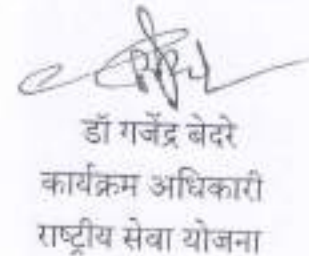 डॉ गजेंद्र बेदरे
कार्यक्रम अधिकारी
राष्ट्रीय सेवा योजना